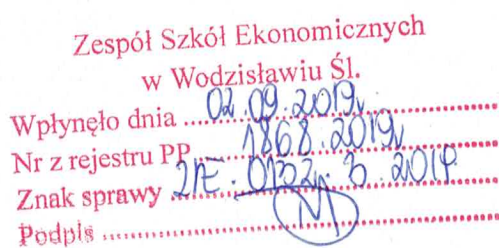 Zespół Szkół Ekonomicznych
w Wodzisławiu Śl.
Wpłynęło dnia 02.09.2019r
Nr z rejestru PP 1868.2019r
Znak sprawy 0132. 3. 2019
Podpis